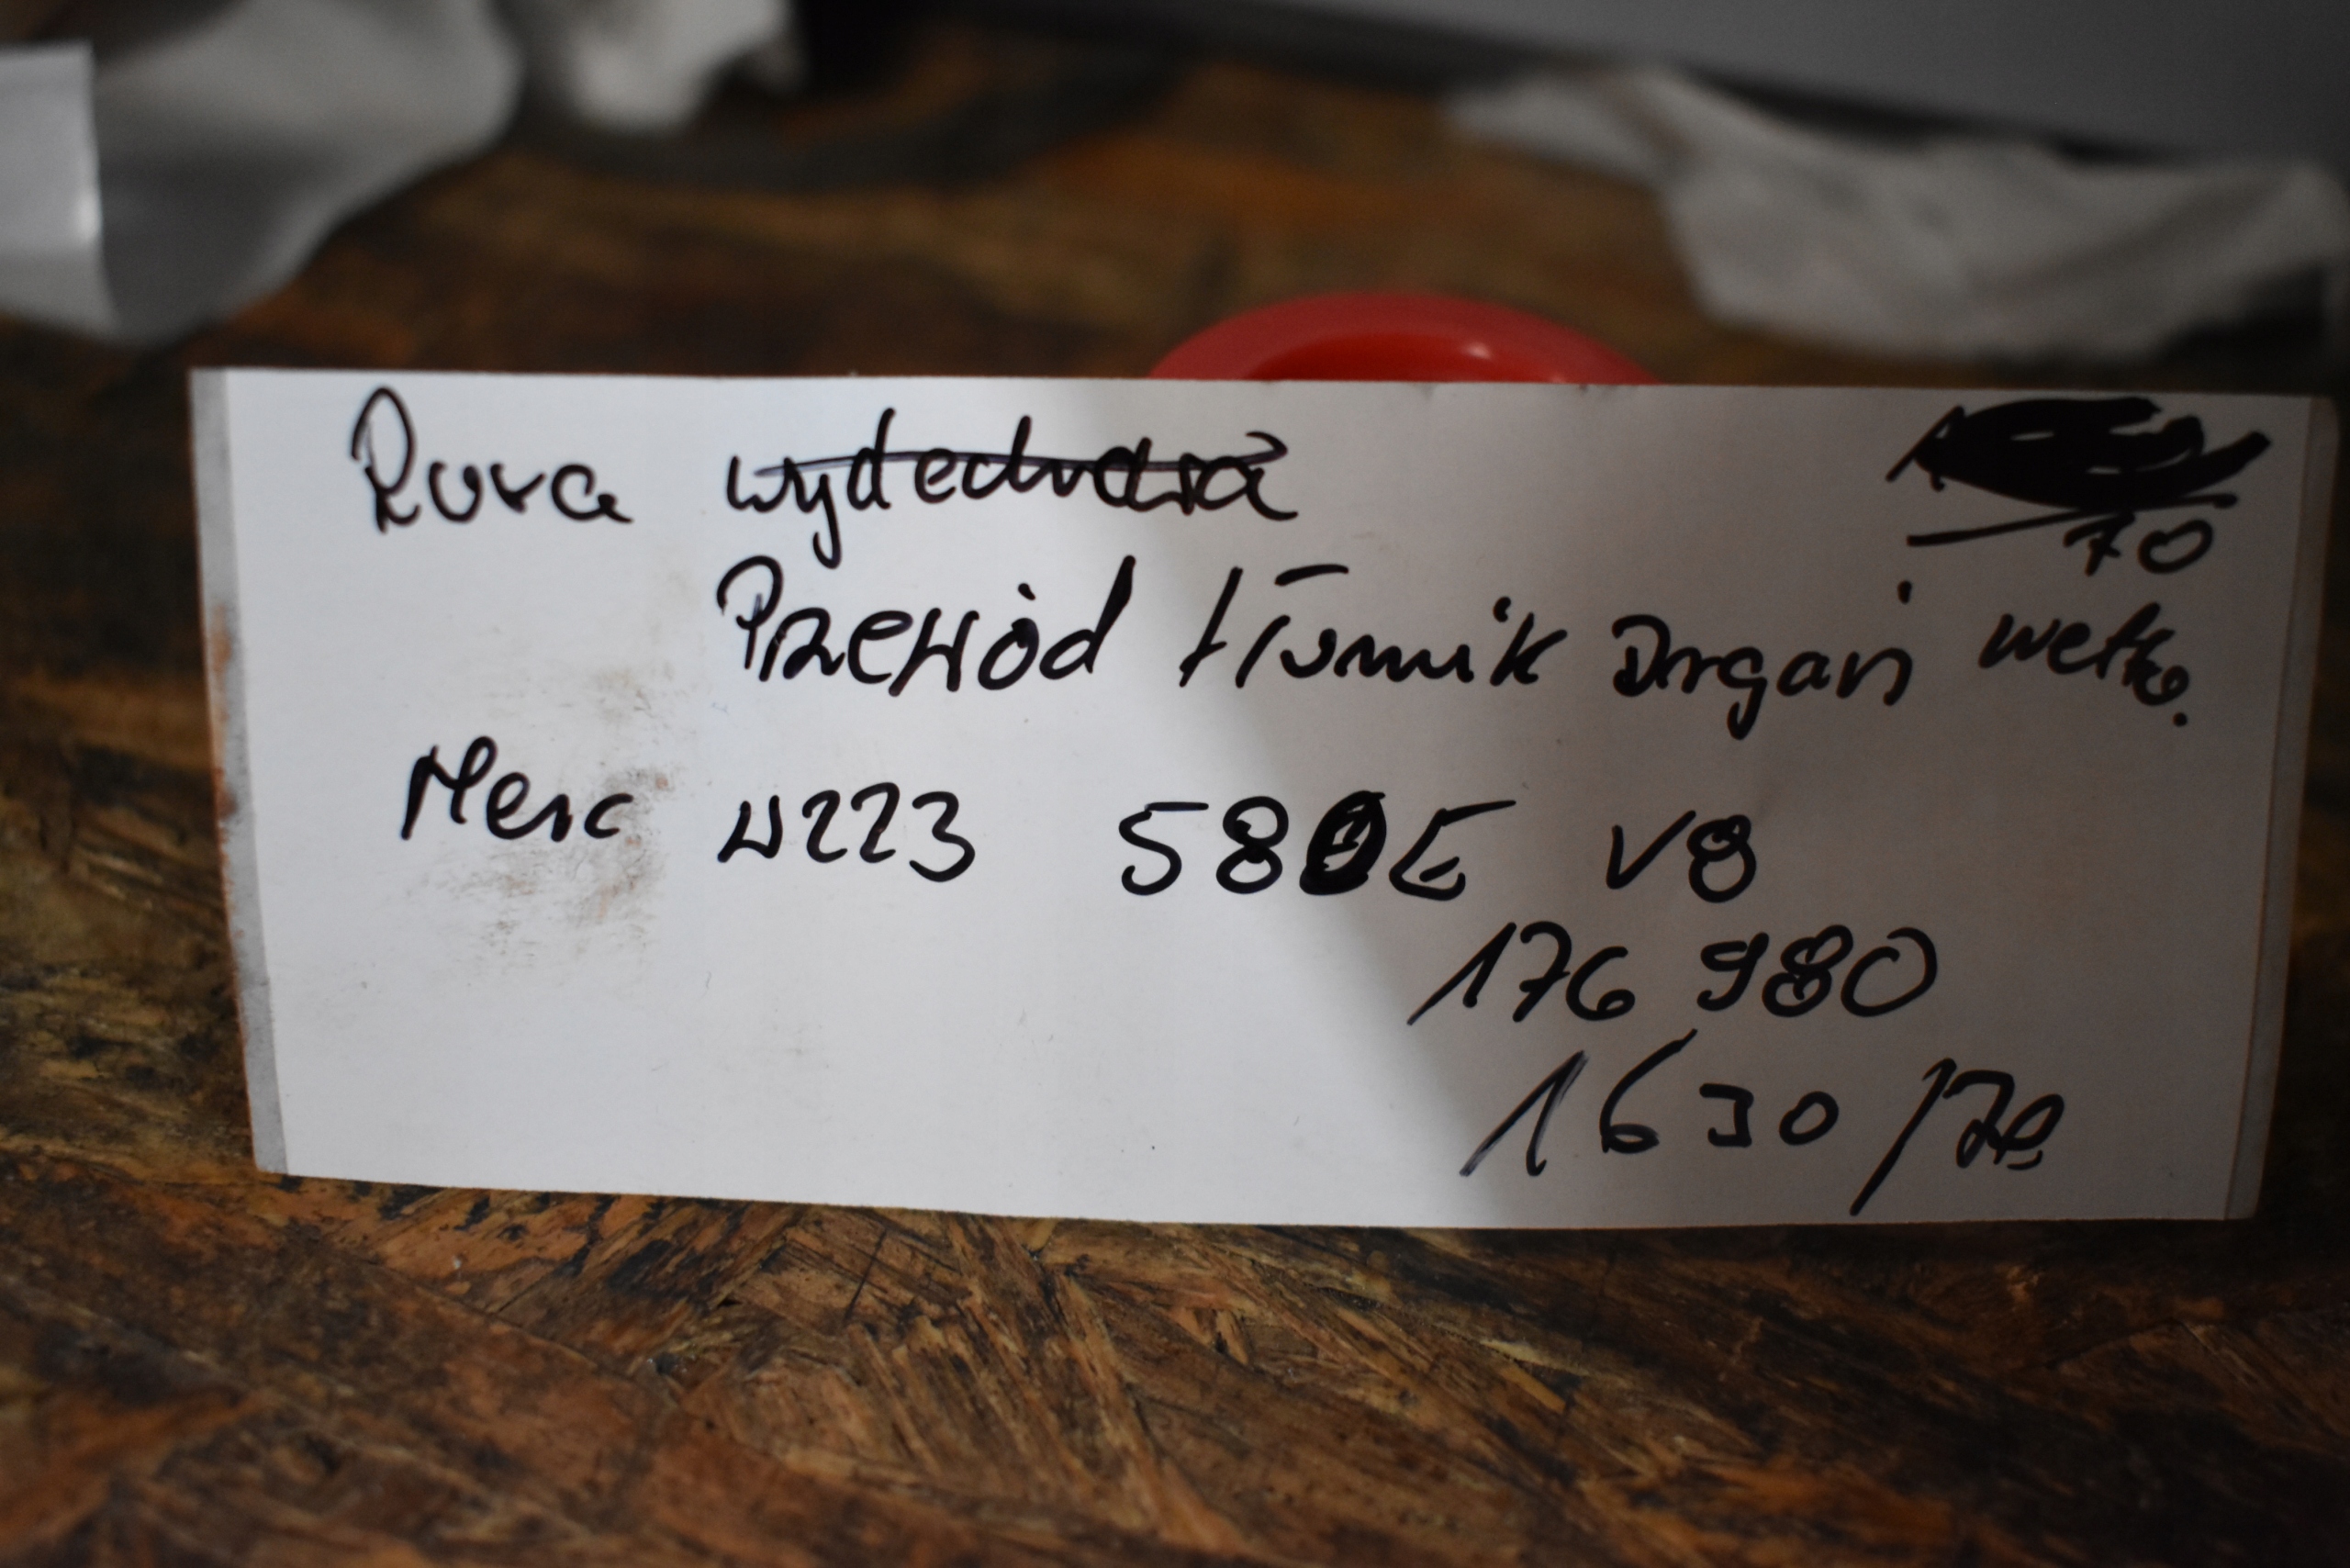 Rura wydechowa
70
Przewód tłumik Drgań wetk.
Merc W223 580E V8
176 980
1630 /70